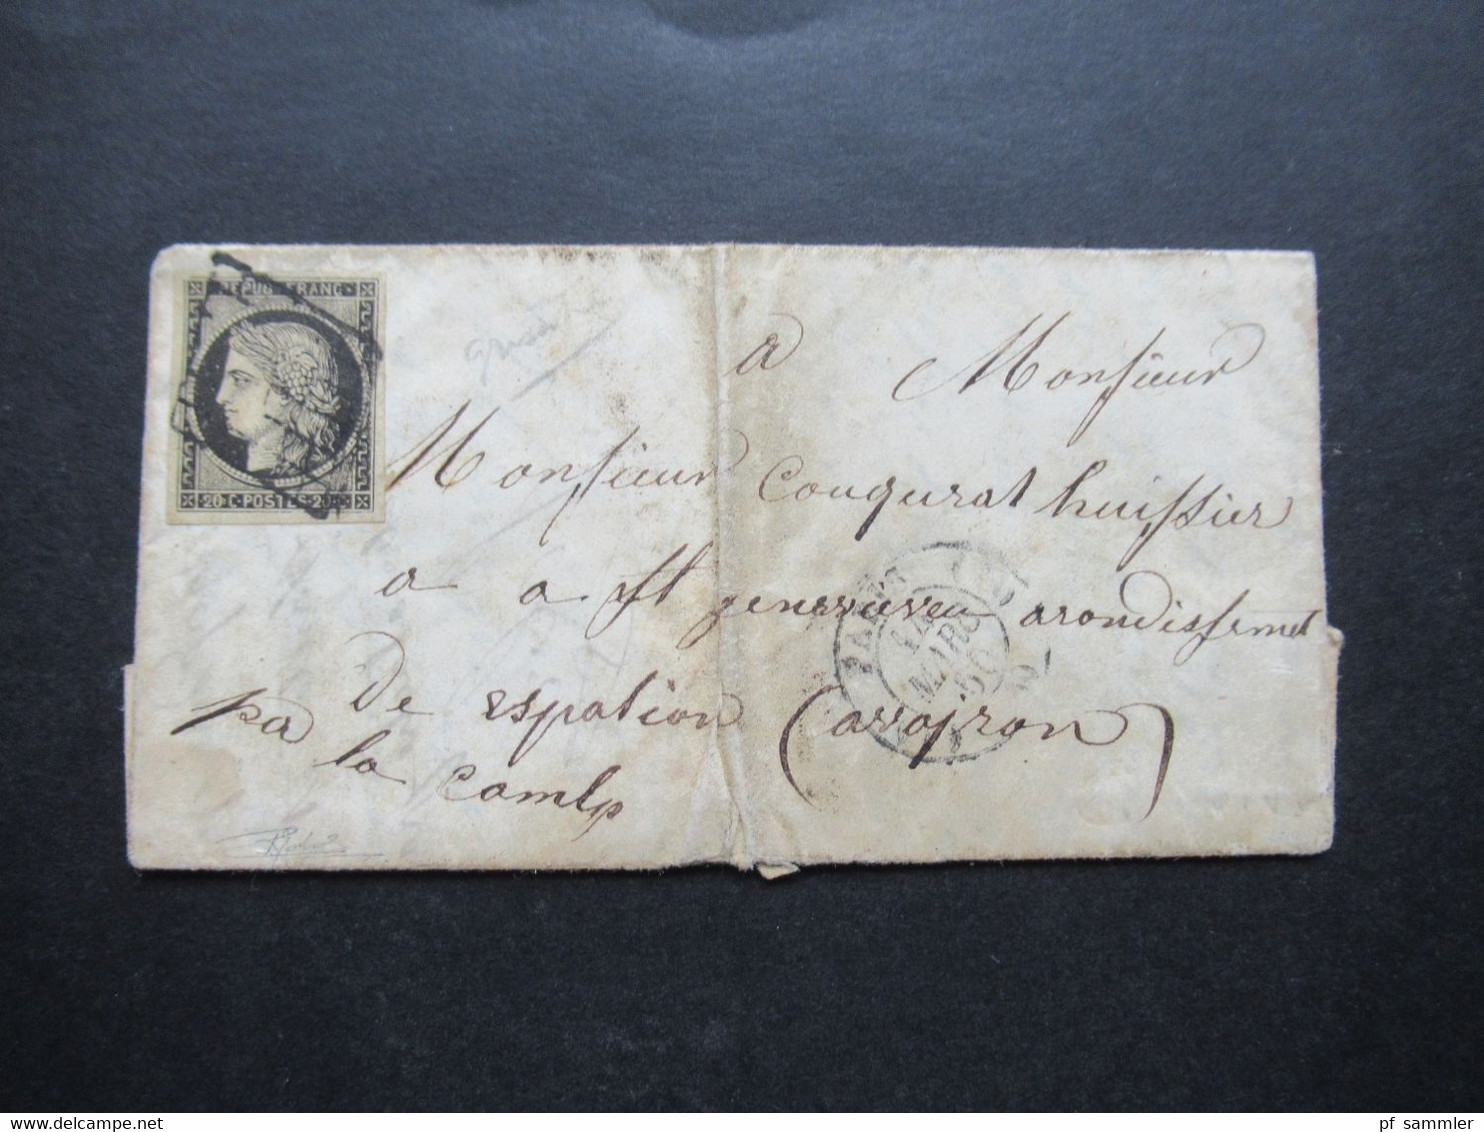 REPUB·FRANC·
20·C·POSTES·20·C
a Monsieur
Monsieur Couqurat huissier
a a St genevieveu arondissemet
de espation (avoyron)
pa la
PARIS
14
MARS
50
pf_sammler